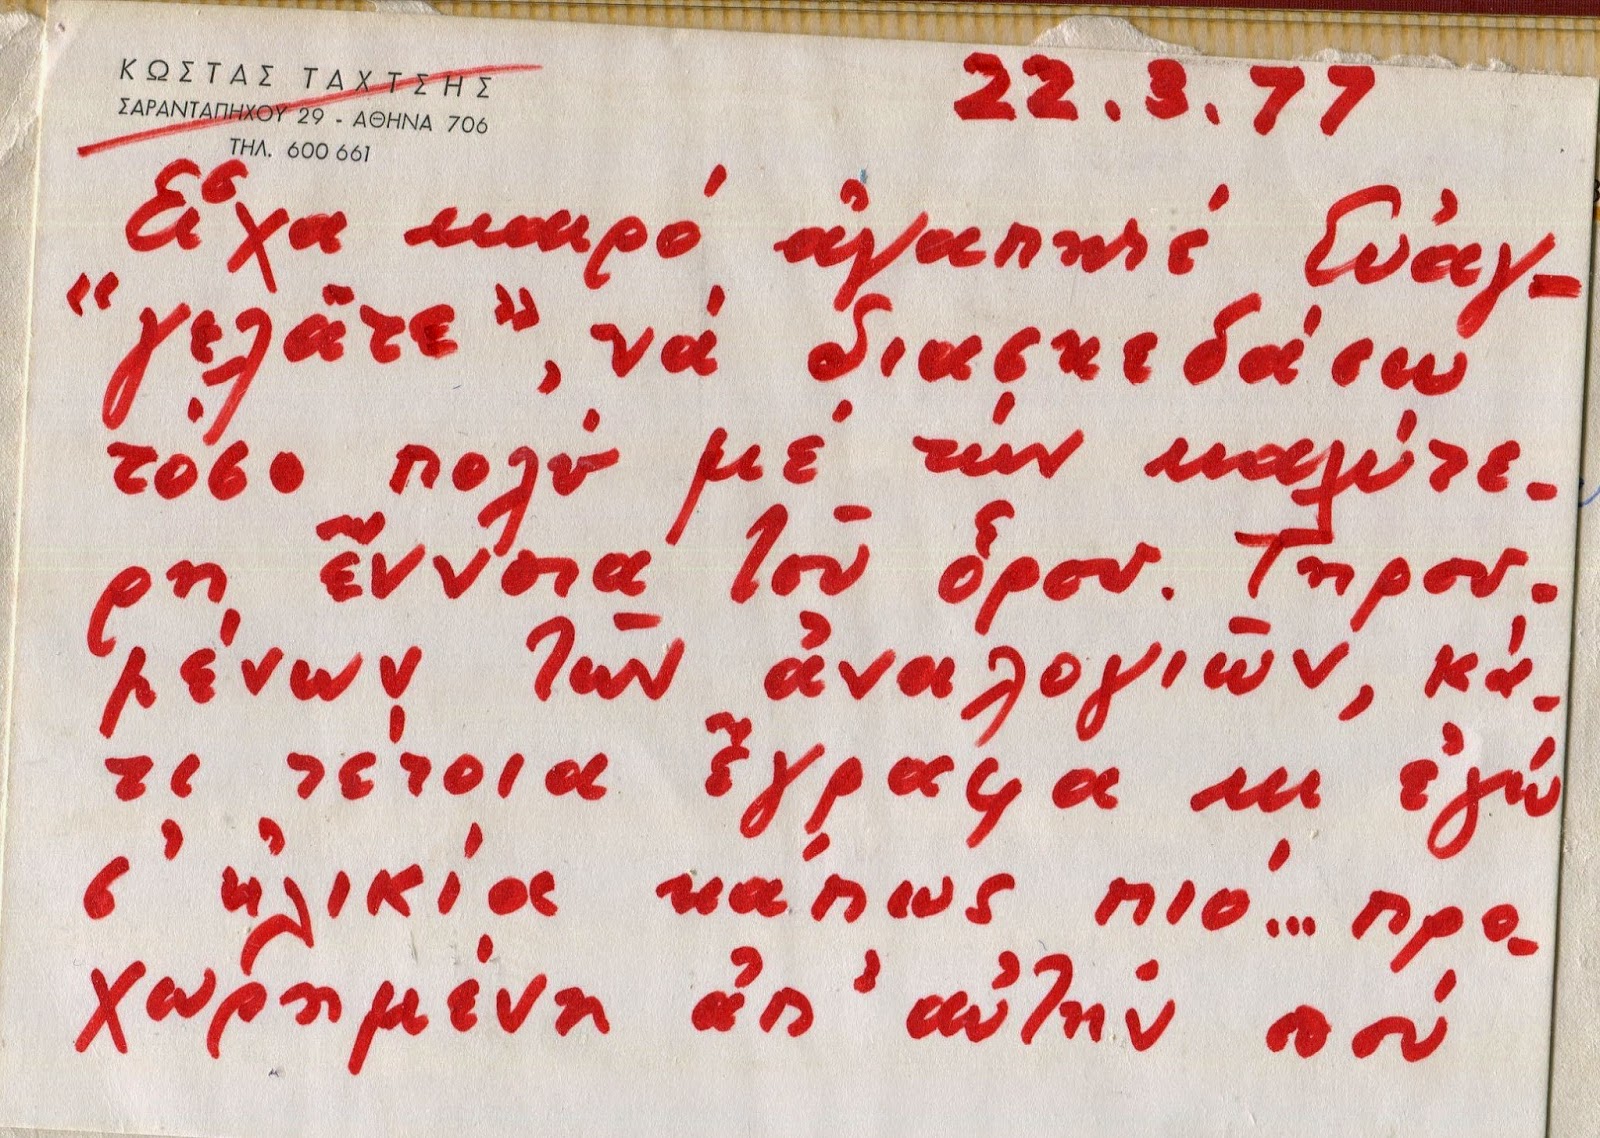 ΚΩΣΤΑΣ ΤΑΧΤΣΗΣ
ΣΑΡΑΝΤΑΠΗΧΟΥ 29 - ΑΘΗΝΑ 706
ΤΗΛ. 600 661
22.3.77
Εἶχα καιρό ἀγαπητέ Εὐάγ-
"γελᾶτε", νά διασκεδάσω
τόσο πολύ μέ τήν καλύτε-
ρη ἔννοια τοῦ ὅρου. Τηρου-
μένων τῶν ἀναλογιῶν, κά-
τι τέτοια ἔγραφα κι ἐγώ
σ' ἡλικία κάπως πιό... προ-
χωρημένη ἀπ' αὐτήν πού